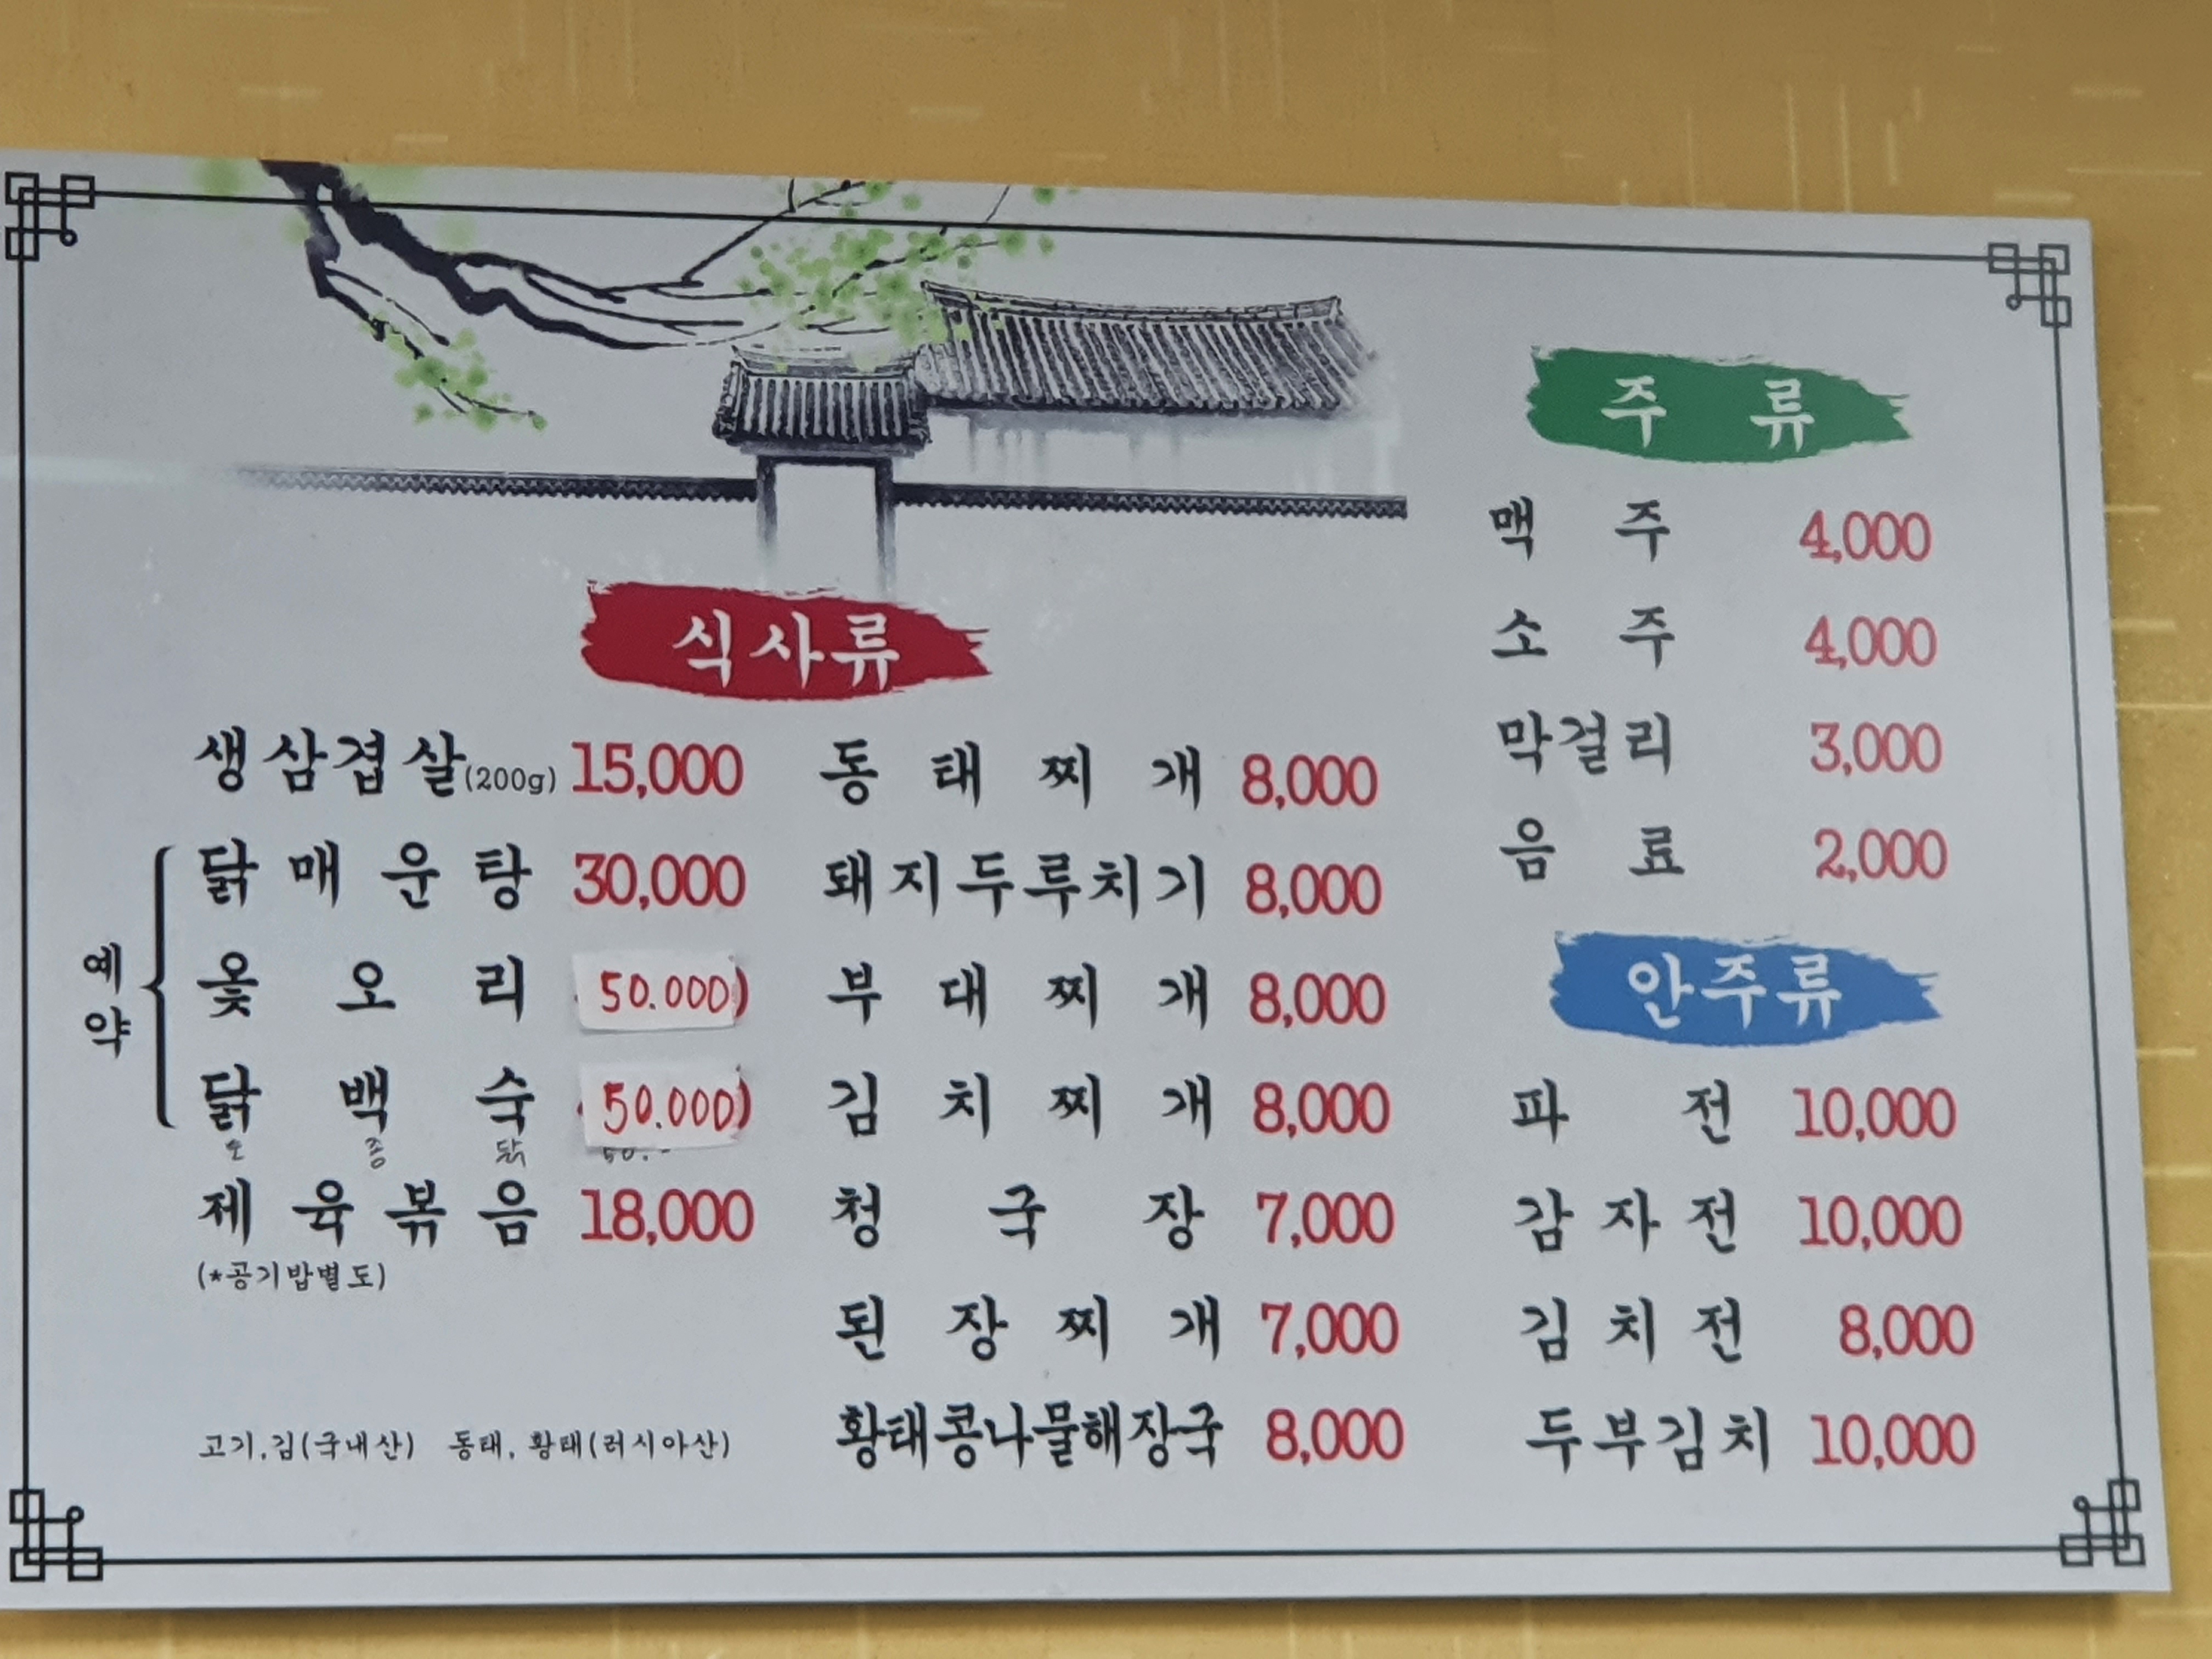 식사류
생삼겹살(200g) 15,000
예약
닭매운탕 30,000
옻오리 50.000)
닭백숙 50.000)
토종닭 50.-
제육볶음 18,000
(*공기밥별도)
고기,김(국내산) 동태, 황태(러시아산)
동태찌개 8,000
돼지두루치기 8,000
부대찌개 8,000
김치찌개 8,000
청국장 7,000
된장찌개 7,000
황태콩나물해장국 8,000
주류
맥주 4,000
소주 4,000
막걸리 3,000
음료 2,000
안주류
파전 10,000
감자전 10,000
김치전 8,000
두부김치 10,000